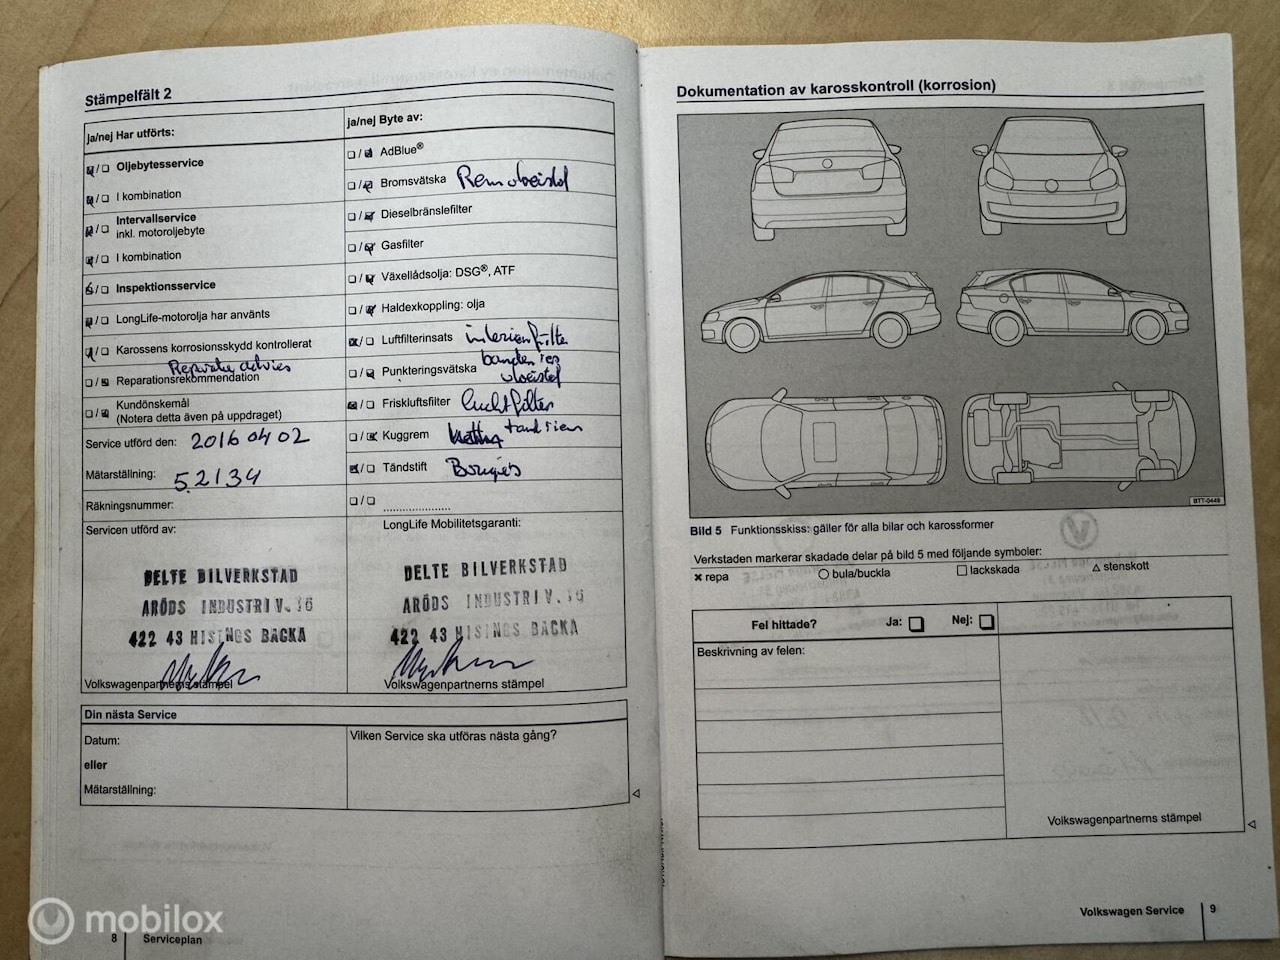 Stämpelfält 2
ja/nej Har utförts:
Oljebytesservice
I kombination
Intervallservice
inkl. motoroljebyte
I kombination
Inspektionsservice
LongLife-motorolja har använts
Karossens korrosionsskydd kontrollerat
Reparatie advies
Reparationsrekommendation
Kundönskemål
(Notera detta även på uppdraget)
Service utförd den: 2016 04 02
Mätarställning: 52134
Räkningsnummer:
Servicen utförd av:
DELTE BILVERKSTAD
ARÖDS INDUSTRIV. 16
422 43 HISINGS BACKA
Volkswagenpartnerns stämpel
ja/nej Byte av:
AdBlue®
Bromsvätska Remvloeistof
Dieselbränslefilter
Gasfilter
Växellådsolja: DSG®, ATF
Haldexkoppling: olja
Luftfilterinsats interieurfilter
Punkteringsvätska banden
vloeistof
Friskluftsfilter luchtfilter
Kuggrem tandriem
Tändstift Bougies
LongLife Mobilitetsgaranti:
DELTE BILVERKSTAD
ARÖDS INDUSTRIV. 16
422 43 HISINGS BACKA
Volkswagenpartnerns stämpel
Din nästa Service
Datum:
eller
Mätarställning:
Vilken Service ska utföras nästa gång?
8 Serviceplan
mobilox
Dokumentation av karosskontroll (korrosion)
BTT-0448
Bild 5 Funktionsskiss: gäller för alla bilar och karossformer
Verkstaden markerar skadade delar på bild 5 med följande symboler:
repa bula/buckla lackskada stenskott
Fel hittade? Ja: Nej:
Beskrivning av felen:
Volkswagenpartnerns stämpel
Volkswagen Service 9